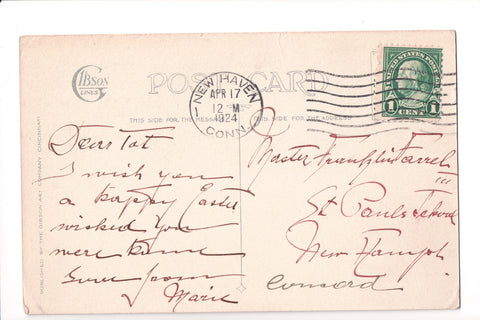 GIBSON
LINES
POST CARD
NEW HAVEN
APR 17
12 M
1924
CONN.
UNITED STATES POSTAGE
1 CENT 1
THIS SIDE FOR THE MESSAGE
THIS SIDE FOR THE ADDRESS
PUBLISHED BY THE GIBSON ART COMPANY, CINCINNATI
Dear Tot
I wish you
a happy Easter
wished you
were home
Love from
Marie
Master Franklin Farrel
III
St Pauls School
New Hamph
Concord